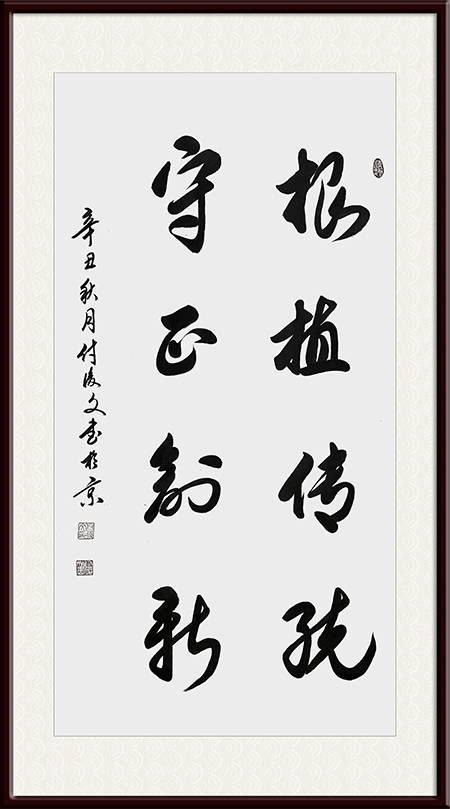 根植传统
守正创新
辛丑秋月付俊文书于京